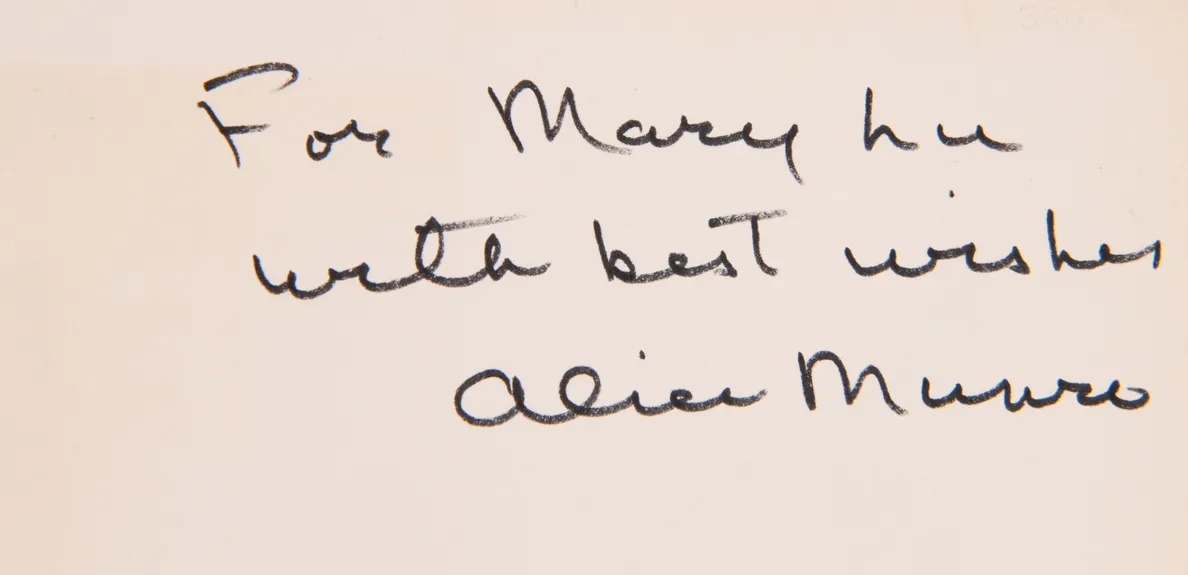 For Mary Lu
with best wishes
Alice Munro